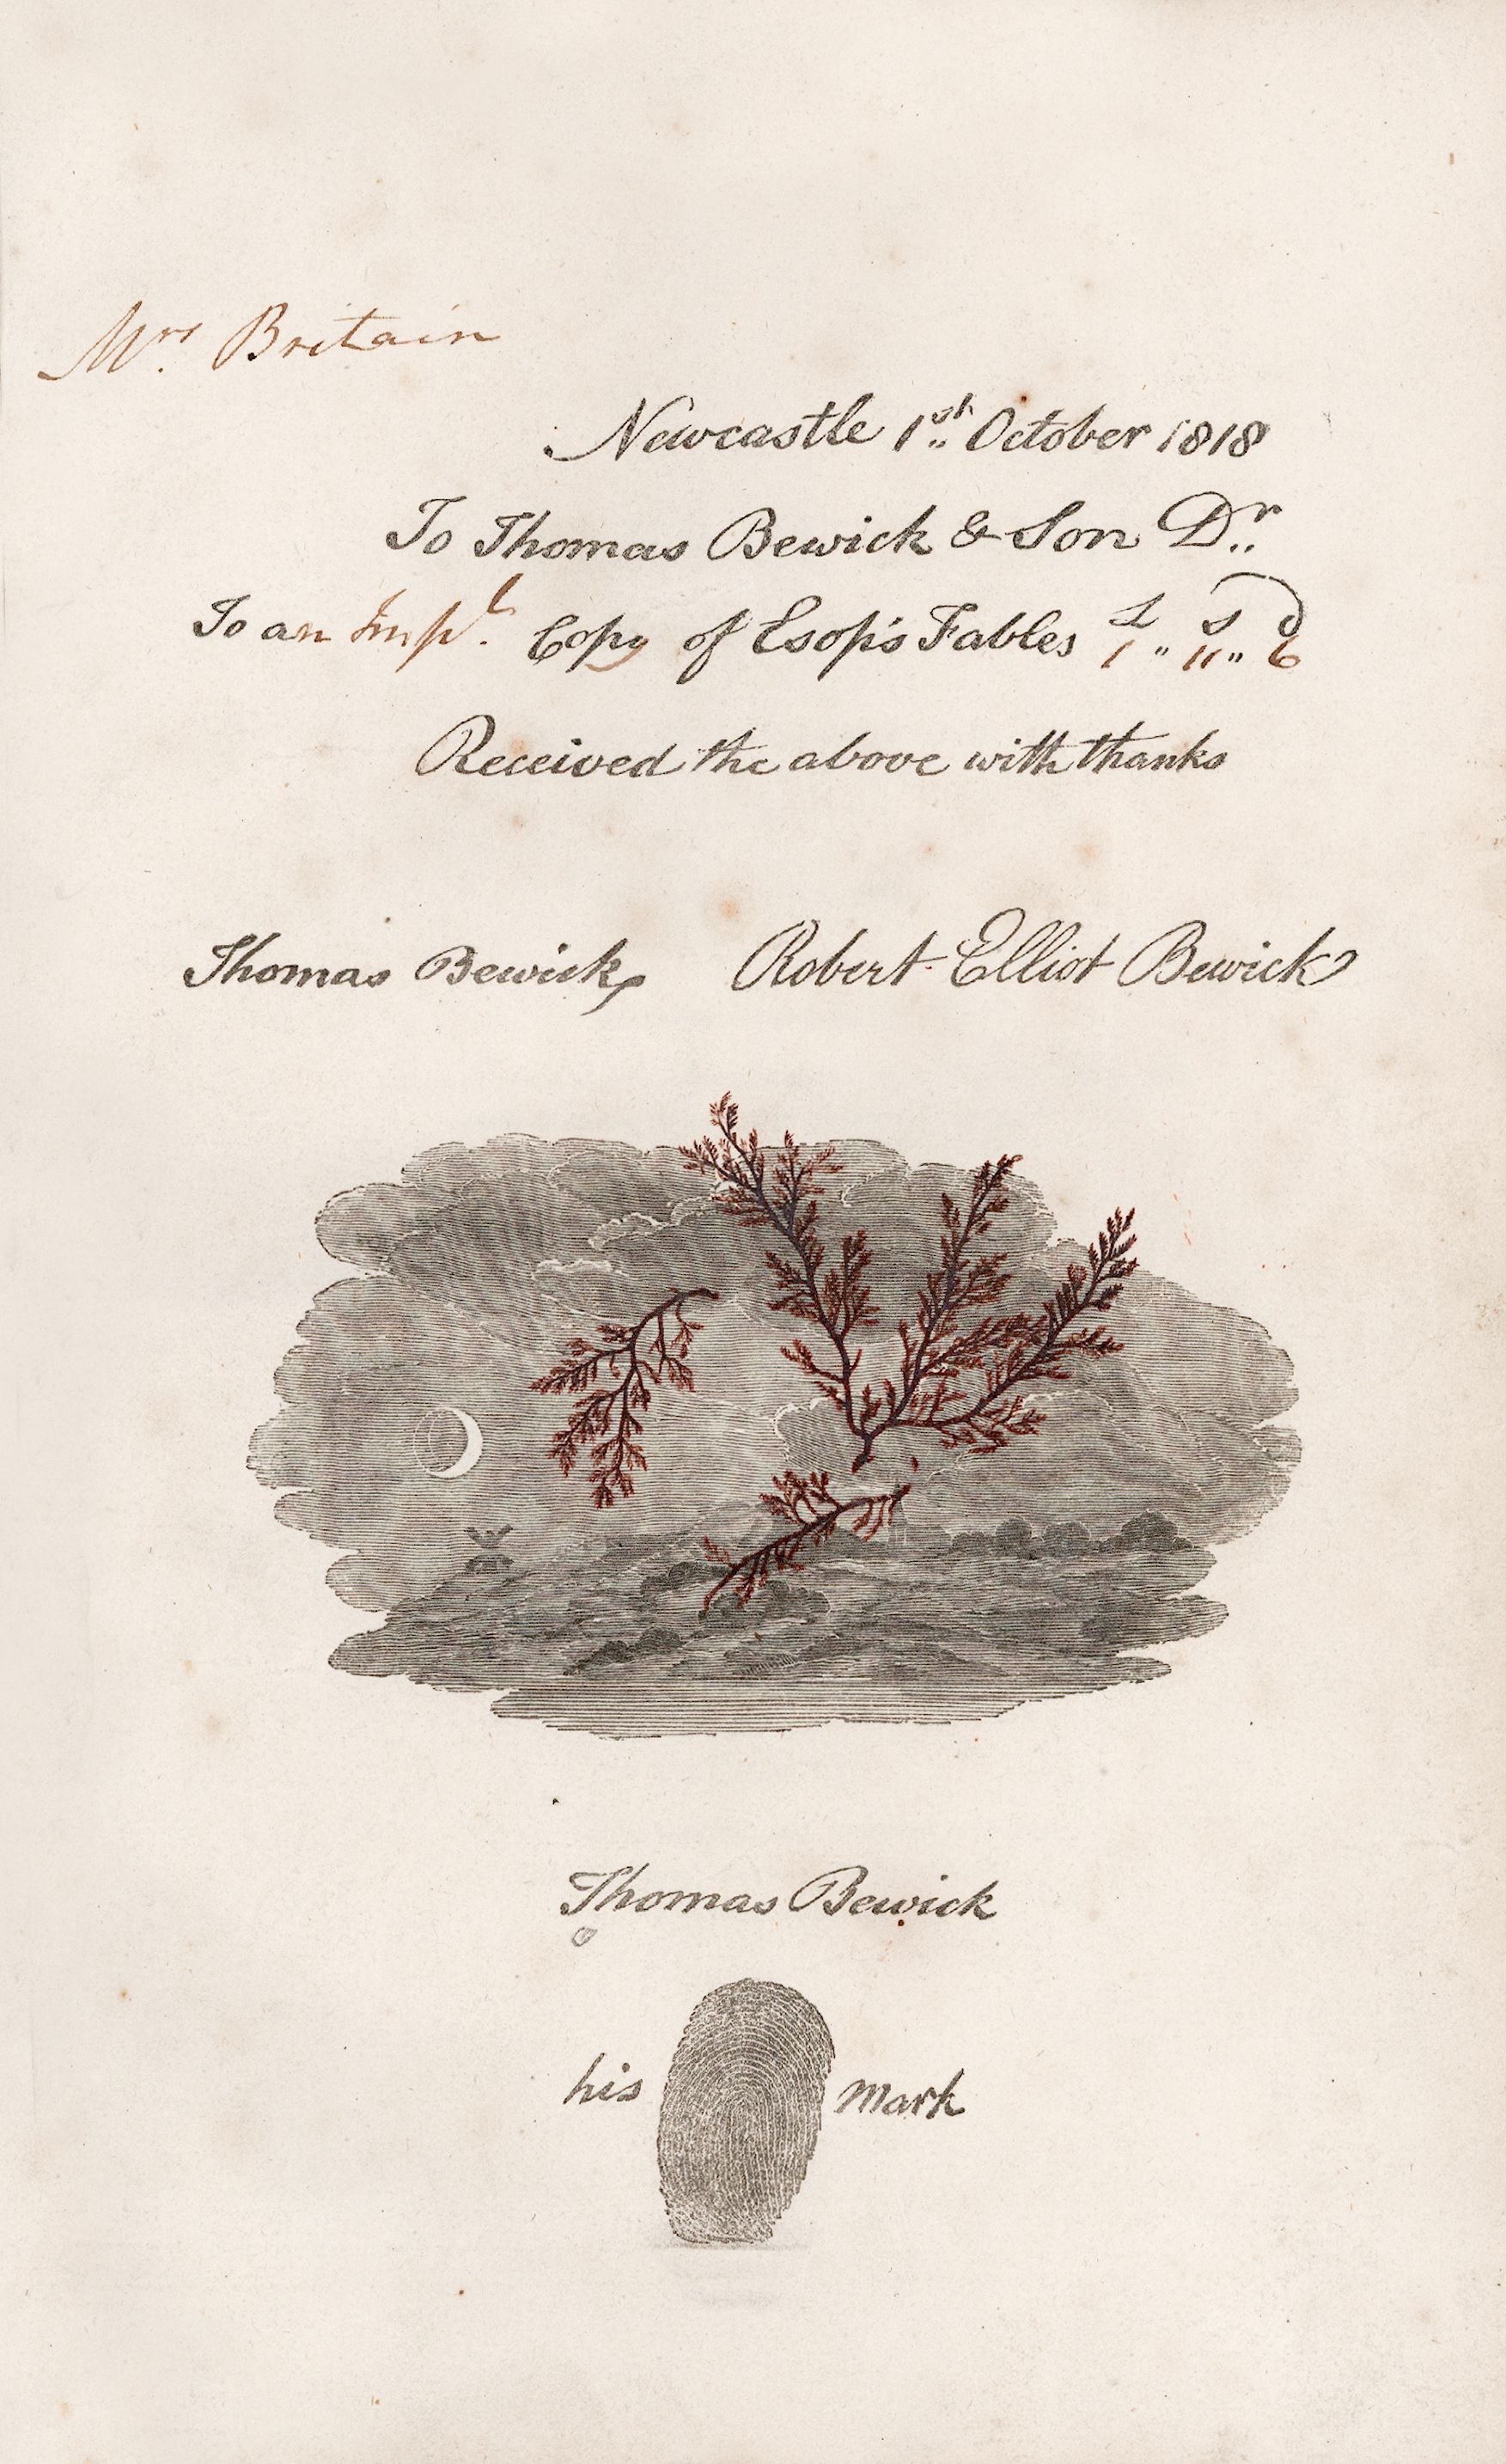 Mrs. Britain
Newcastle 1st October 1818
To Thomas Bewick & Son Dr
To an Impl. Copy of Esop's Fables £ s d 1 " 11 " 6
Received the above with thanks
Thomas Bewick Robert Elliot Bewick
Thomas Bewick
his mark